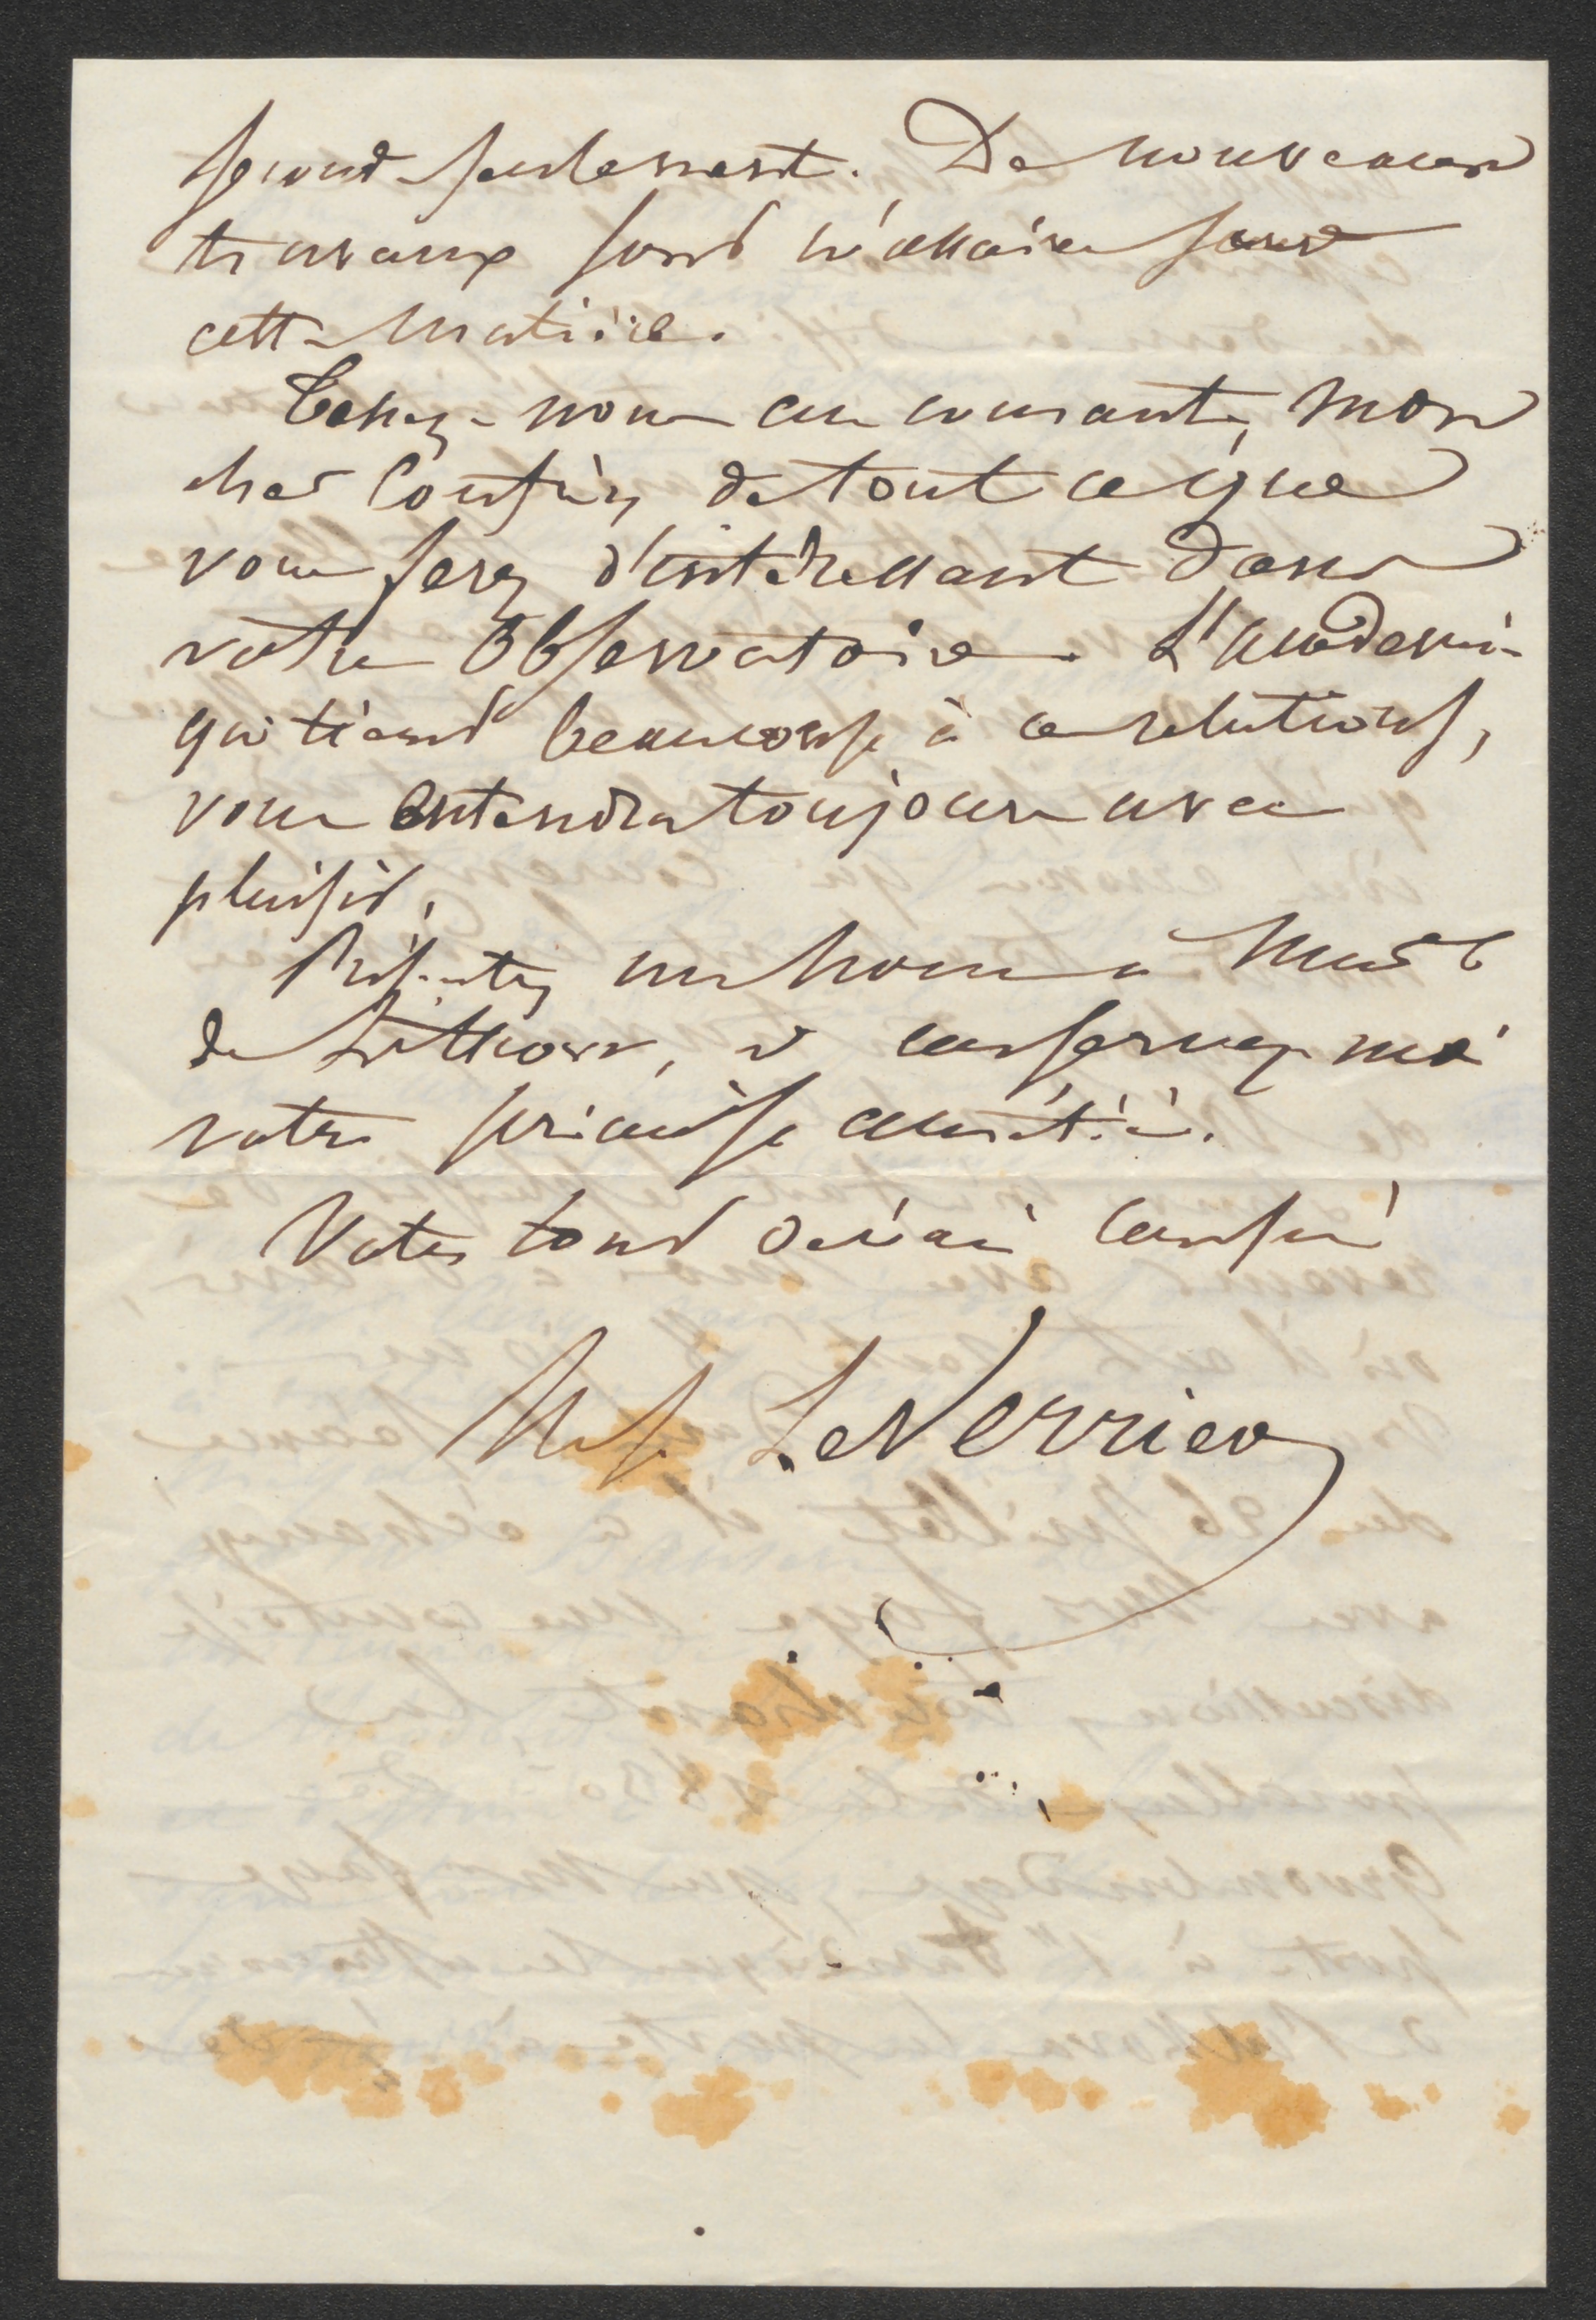 second seulement. De nouveaux
travaux sont nécessaires sur
cette matière.
Tenez-nous au courant, mon
cher Confrère, de tout ce que
vous ferez d'intéressant dans
votre Observatoire. L'académie
qui tient beaucoup à ces relations,
vous entendra toujours avec
plaisir.
Présentez mes hommages à Mad e
de Littrow, et conservez moi
votre précieuse amitié.
Votre tout dévoué confrère
U. J. LeVerrier